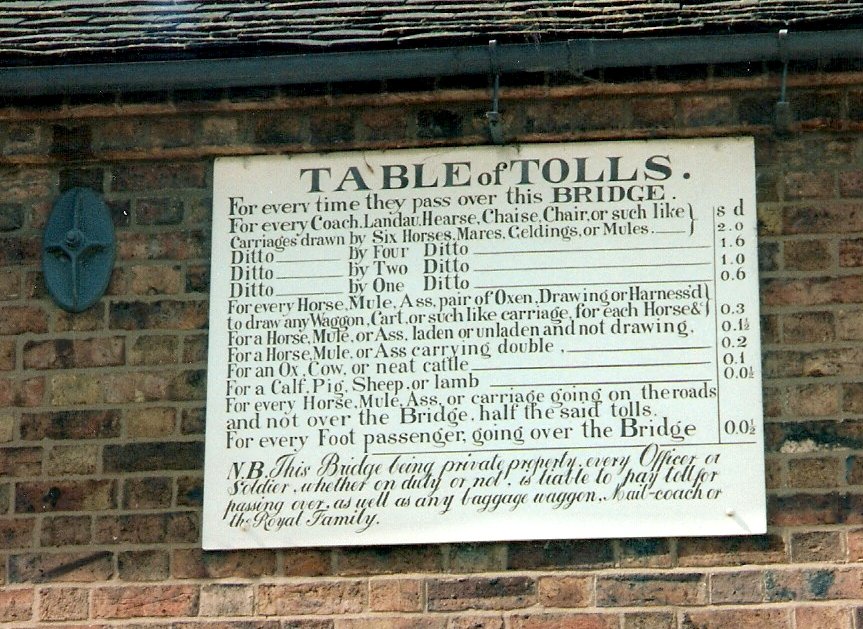 TABLE of TOLLS.
For every time they pass over this BRIDGE. s d
For every Coach, Landau, Hearse, Chaise, Chair, or such like }
Carriages drawn by Six Horses, Mares, Geldings, or Mules. 2.0
Ditto by Four Ditto 1.6
Ditto by Two Ditto 1.0
Ditto by One Ditto 0.6
For every Horse, Mule, Ass, pair of Oxen, Drawing or Harness'd }
to draw any Waggon, Cart, or such like carriage, for each Horse & 0.3
For a Horse, Mule, or Ass, laden or unladen and not drawing, 0.1½
For a Horse, Mule, or Ass carrying double, 0.2
For an Ox, Cow, or neat cattle 0.1
For a Calf, Pig, Sheep, or lamb 0.0½
For every Horse, Mule, Ass, or carriage going on the roads
and not over the Bridge, half the said tolls.
For every Foot passenger, going over the Bridge 0.0½
N.B. This Bridge being private property, every Officer or
Soldier, whether on duty or not, is liable to pay toll for
passing over, as well as any baggage waggon, Mail-coach or
the Royal Family.